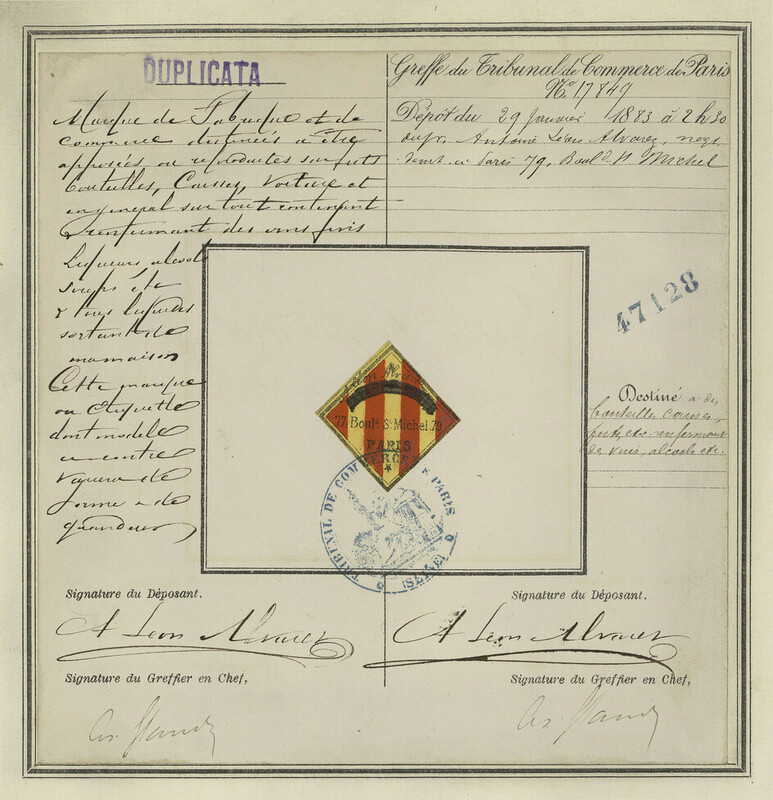 DUPLICATA
Marque de Fabrique et de
commerce destinées a être
apposées ou reproduites sur fûts
bouteilles, Caisses, Voiture et
en général sur tout contenant
renfermant des vins fins
Liqueurs alcools
sirops etc
& tous liquides
sortant de
ma maison
Cette marque
ou Etiquette
dont modele
ci contre
variera de
forme & de
grandeur
Greffe du Tribunal de Commerce de Paris
No 17849
Dépôt du 29 Janvier 1883 à 2h30
Antoine Léon Alvarez, neg
demt a Paris 79, Boul. St Michel
47128
Destiné a des
bouteilles caisses
futs, etc renfermant
des vins, alcools etc.
Léon Alvarez
77. Boult. St Michel. 79
PARIS
TRIBUNAL DE COMMERCE DE PARIS
(SEINE)
Signature du Déposant.
A Léon Alvarez
Signature du Greffier en Chef,
Signature du Déposant.
A Léon Alvarez
Signature du Greffier en Chef,